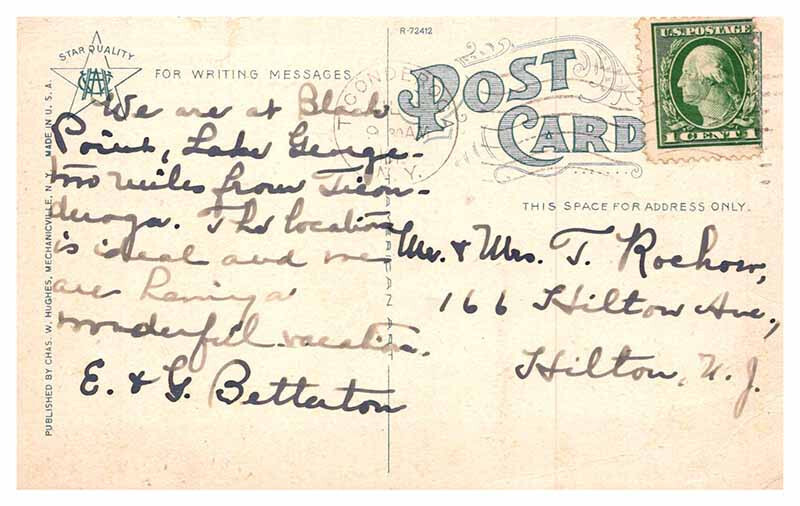 R-72412
STAR QUALITY
CAW
FOR WRITING MESSAGES
POST CARD
TICONDEROGA
N.Y.
U.S. POSTAGE
1 CENT 1
THIS SPACE FOR ADDRESS ONLY.
We are at Black
Point, Lake George-
two miles from Ticon-
deroga. The location
is ideal and we
are having a
wonderful vacation.
E. & G. Betterton
Mr. & Mrs. T. Rochow,
166 Hilton Ave.,
Hilton, N.J.
PUBLISHED BY CHAS. W. HUGHES, MECHANICVILLE, N.Y. MADE IN U.S.A.
AMERICAN ART